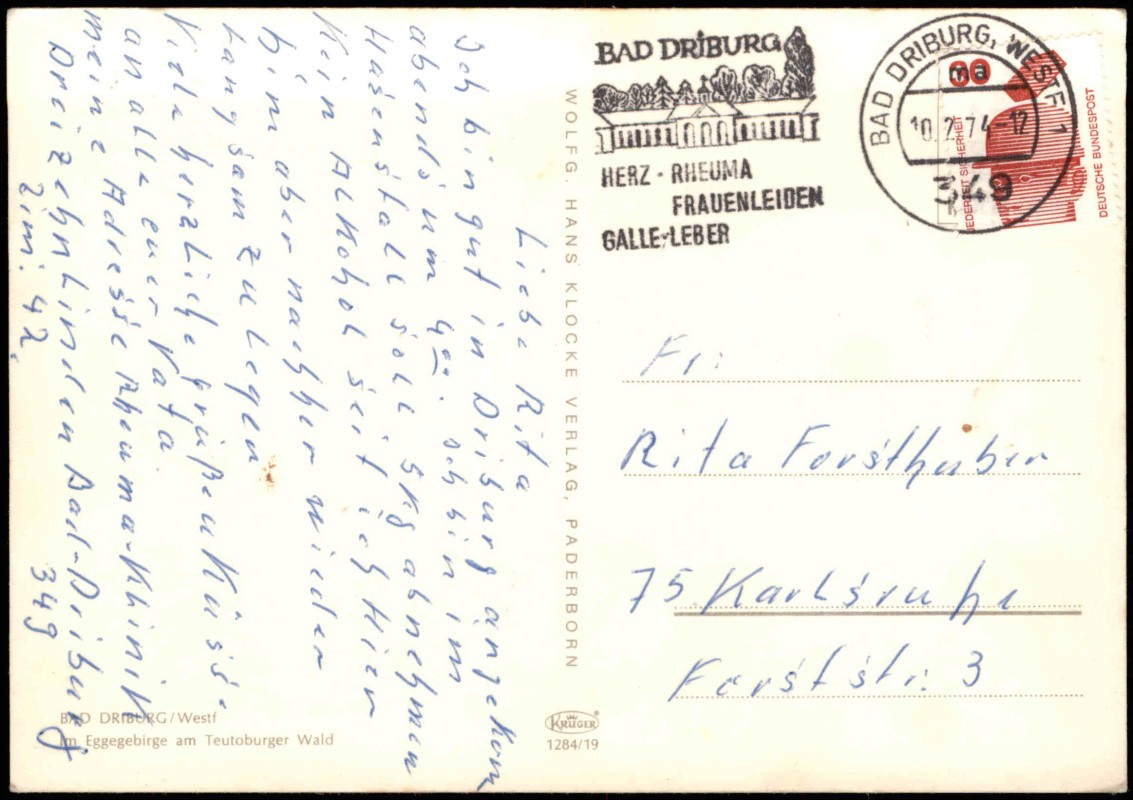 Liebe Rita
Ich bin gut in Driburg angekom
abends um 4 00. ich bin im
Hasenstall soll 5 kg abnehmen
Kein Alkohol seit ich Hier
bin aber nachher wieder
Langsam zu Legen
Viele herzliche grüße u Küsse.
an alle euer Vata
meine Adresse Rheuma-Klinik
Dreizehnlinden Bad-Driburg
Zim: 42. 349
BAD DRIBURG/Westf
Im Eggegebirge am Teutoburger Wald
WOLFG. HANS KLOCKE VERLAG, PADERBORN
KRÜGER
1284/19
BAD DRIBURG
HERZ - RHEUMA
FRAUENLEIDEN
GALLE-LEBER
BAD DRIBURG, WESTF 1
ma
10.2.74-12
349
JEDERZEIT SICHERHEIT
DEUTSCHE BUNDESPOST
Fr:
Rita Forsthuber
75 Karlsruhe
Forststr: 3